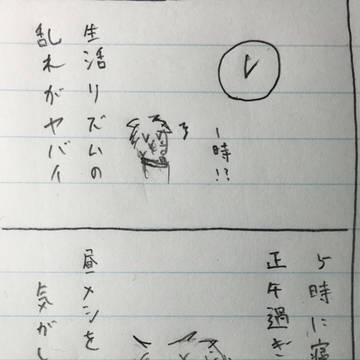 1時!?
生活リズムの
乱れがヤバイ
5時に寝
正午過ぎ
昼メシを
気がし